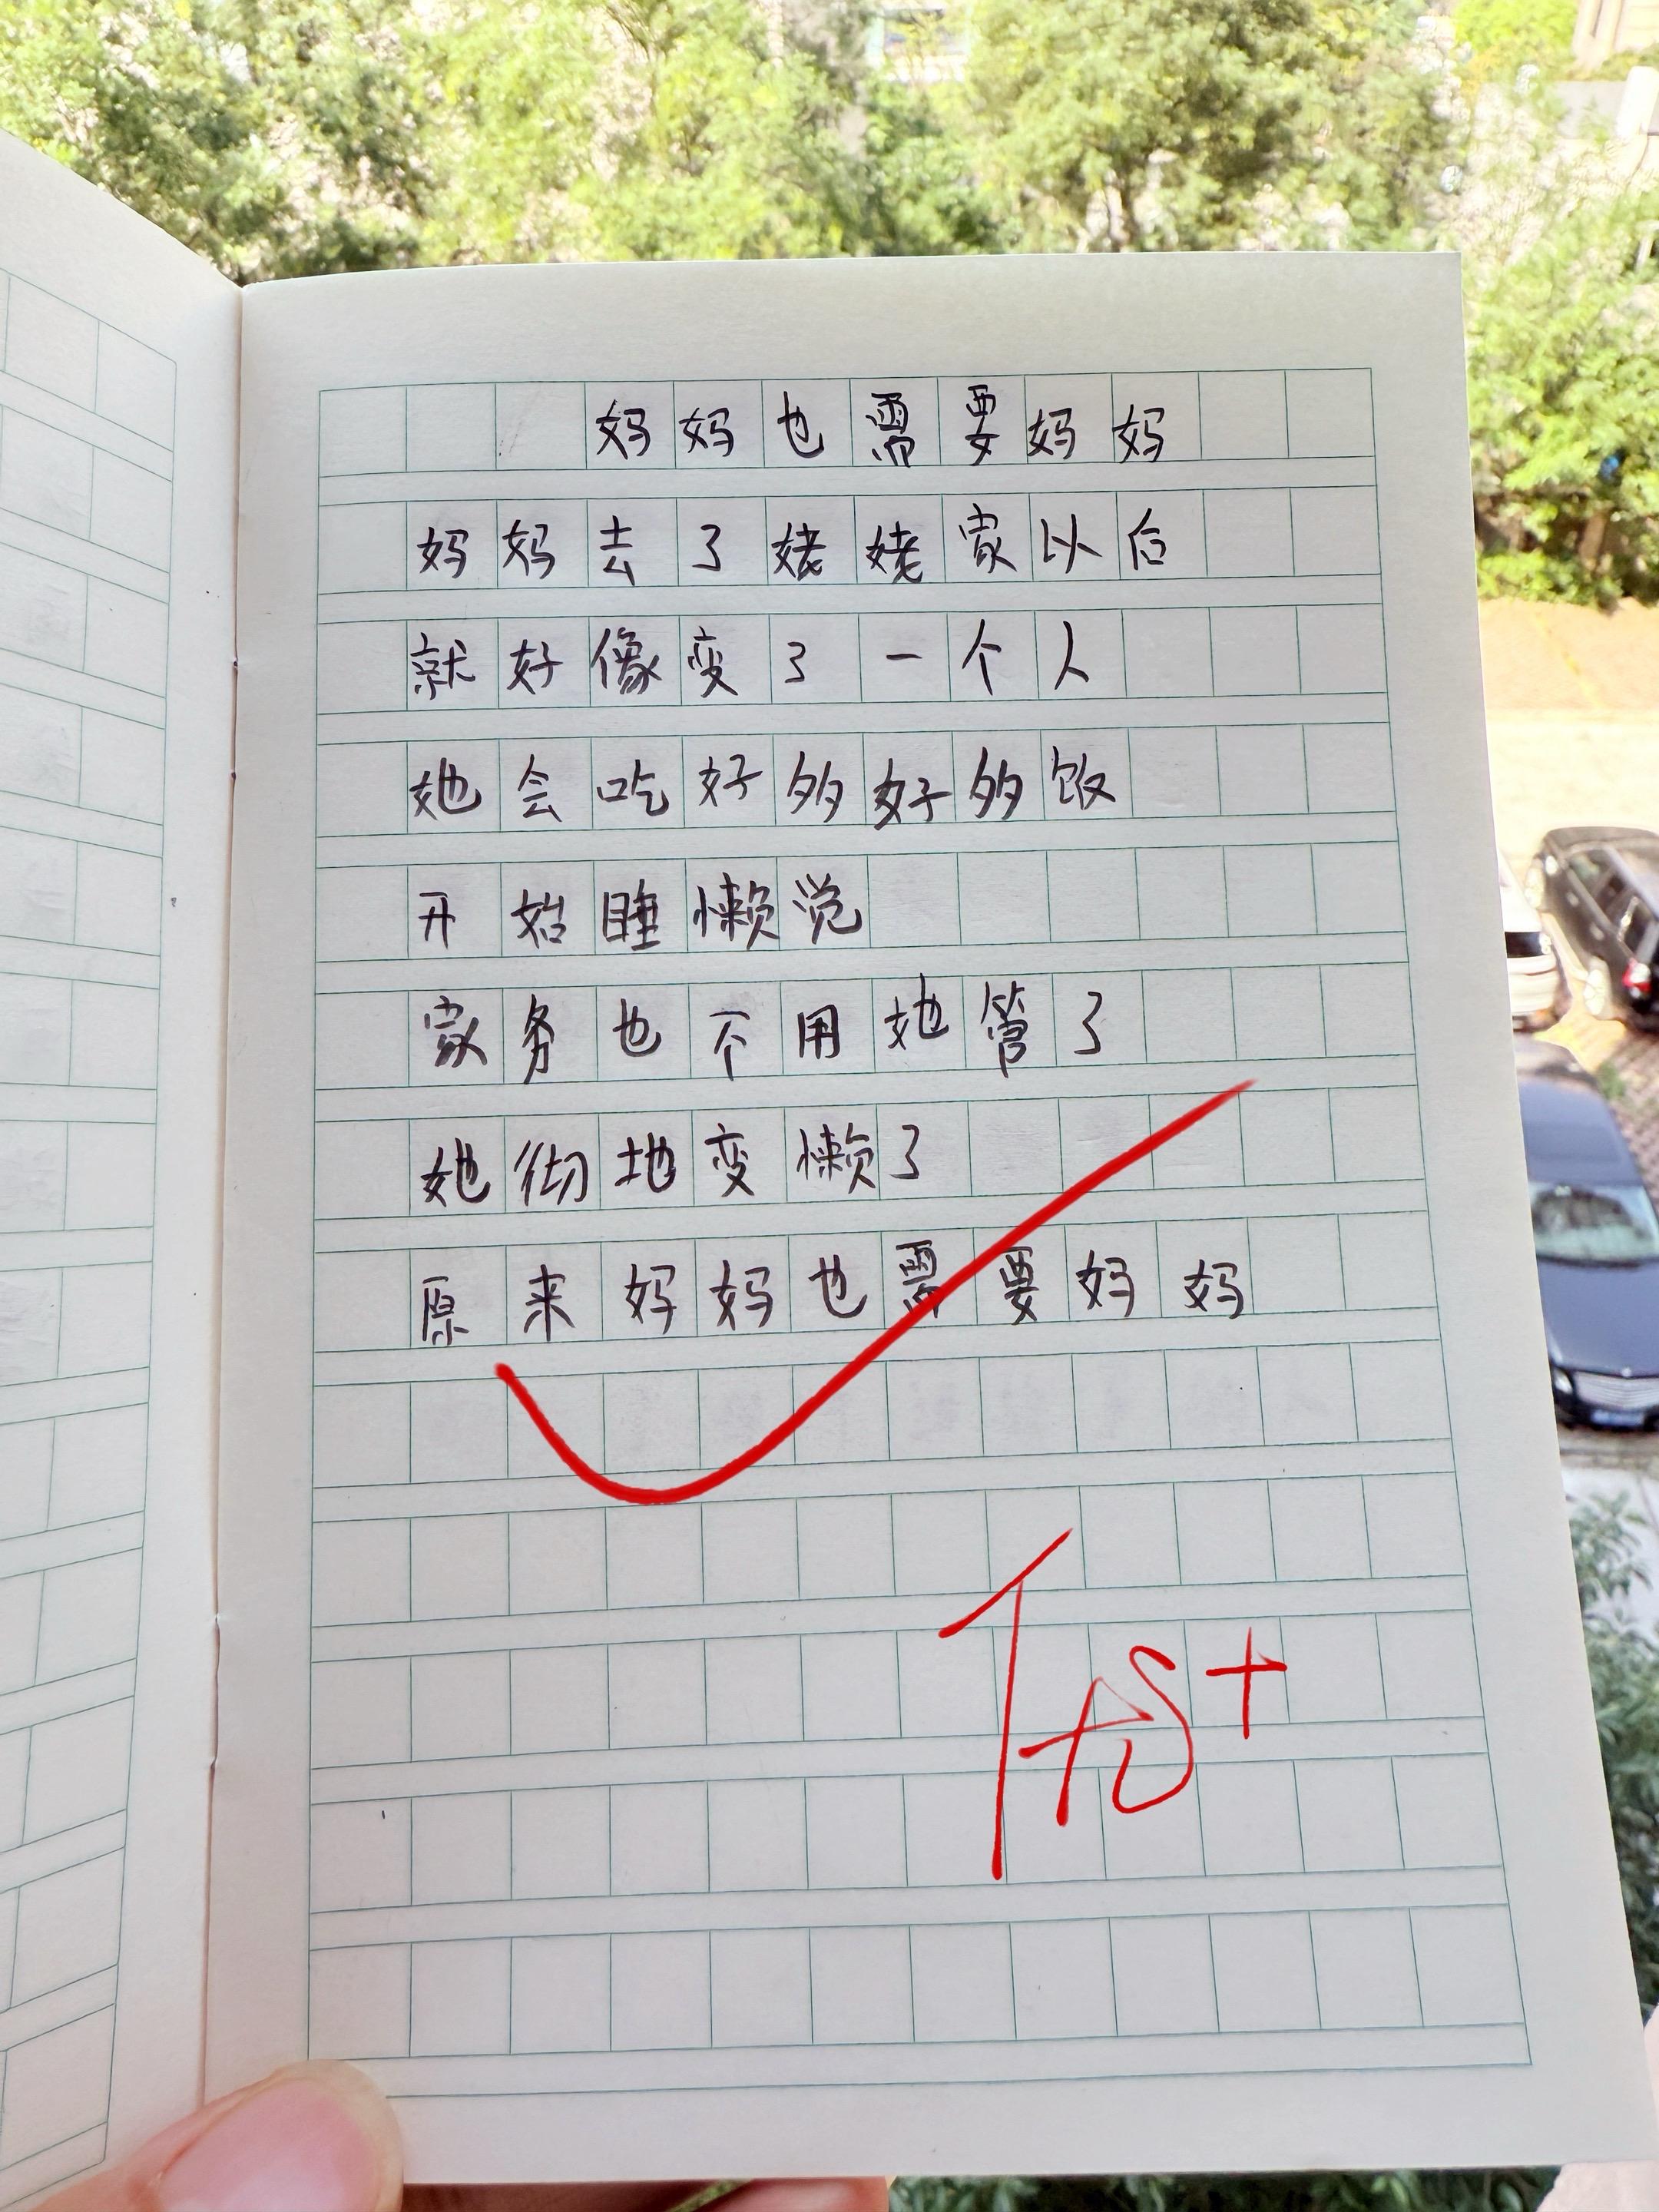 妈妈也需要妈妈
妈妈去了姥姥家以后
就好像变了一个人
她会吃好多好多饭
开始睡懒觉
家务也不用她管了
她彻地变懒了
原来妈妈也需要妈妈